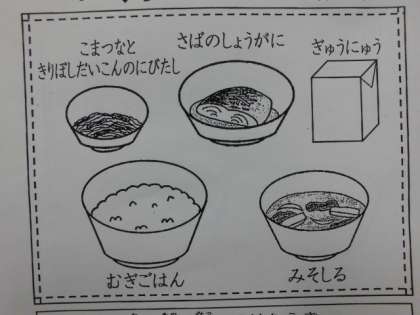 こまつなと
きりぼしだいこんのにびたし
さばのしょうがに
ぎゅうにゅう
むぎごはん
みそしる